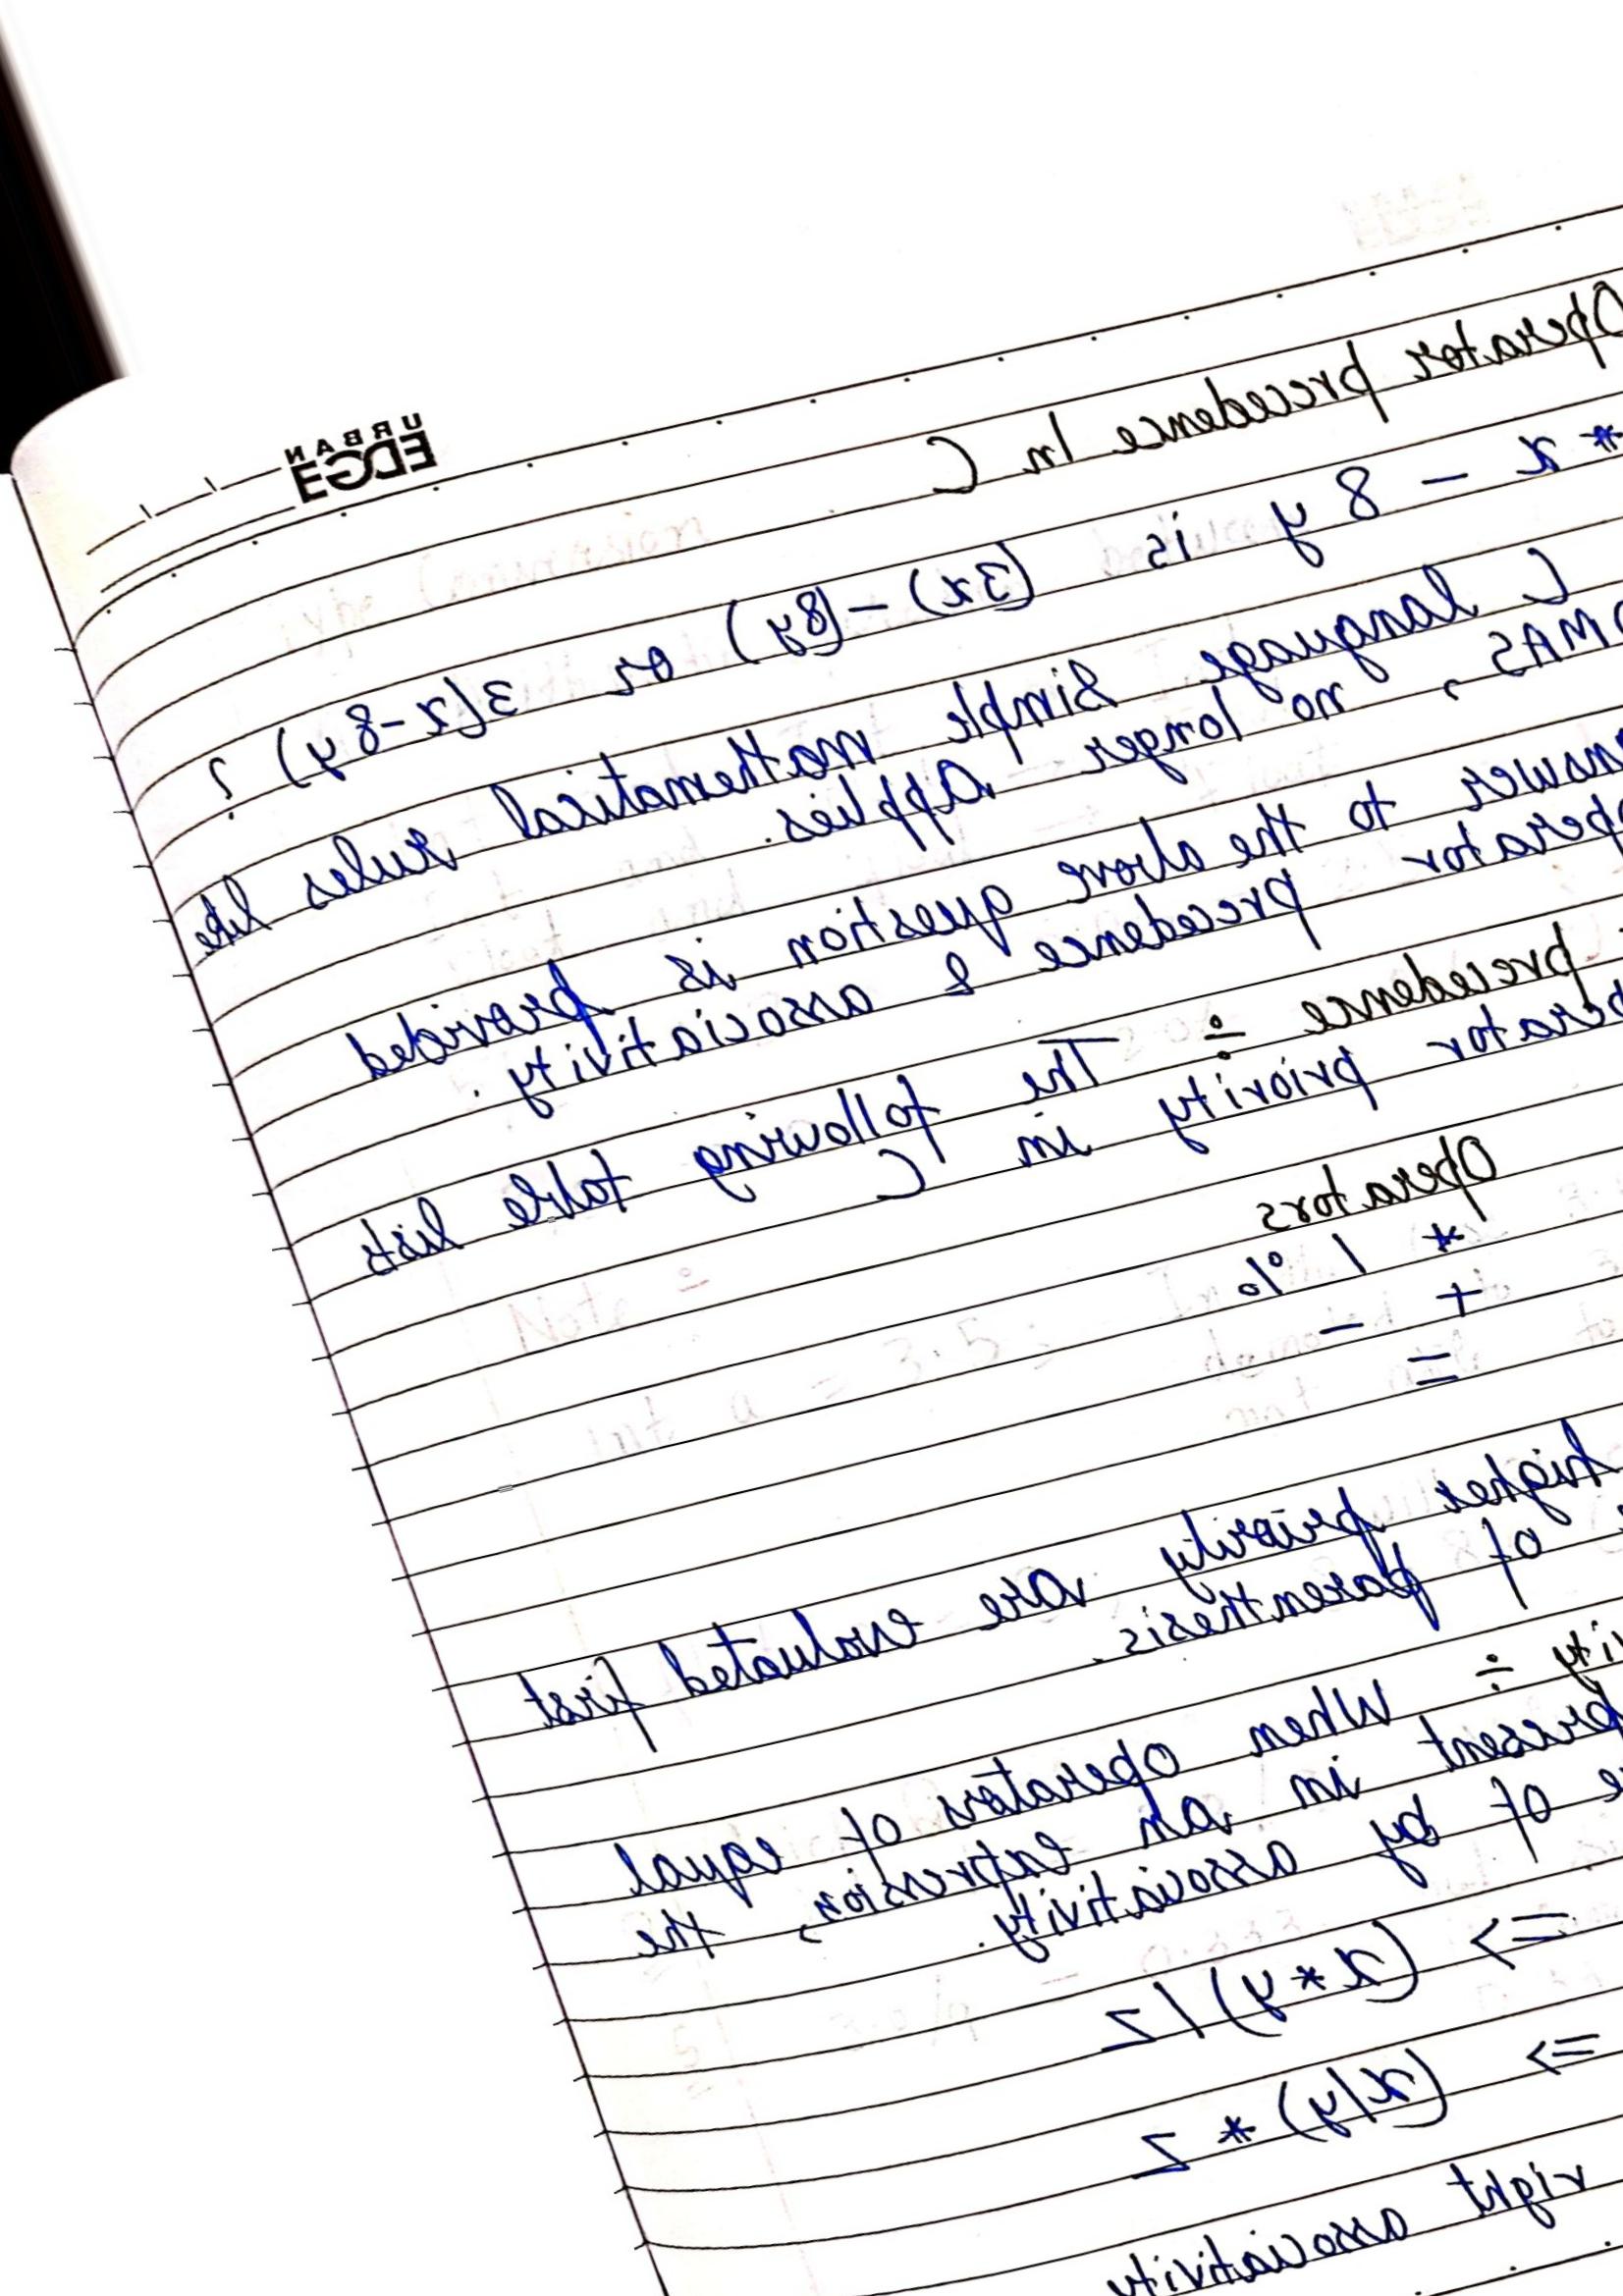 URBAN
EDGE
Operator precedence In C
* x - 8 y is (3x) - (8y) or 3(x-8y) ?
C language simple mathematical rules like
DMAS, no longer applies.
answer to the above question is provided
operator precedence & associativity.
precedence ÷ The following table lists
operator priority in C
Operators
* / %
+ -
=
higher priority are evaluated first
of parenthesis.
ity ÷ When operators of equal
present in an expression, the
e of by associativity.
=> (x*y)/z
=> (x/y) * z
right associativity